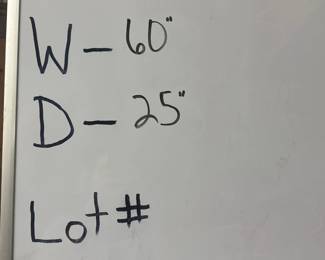 W - 60"
D - 25"
Lot #